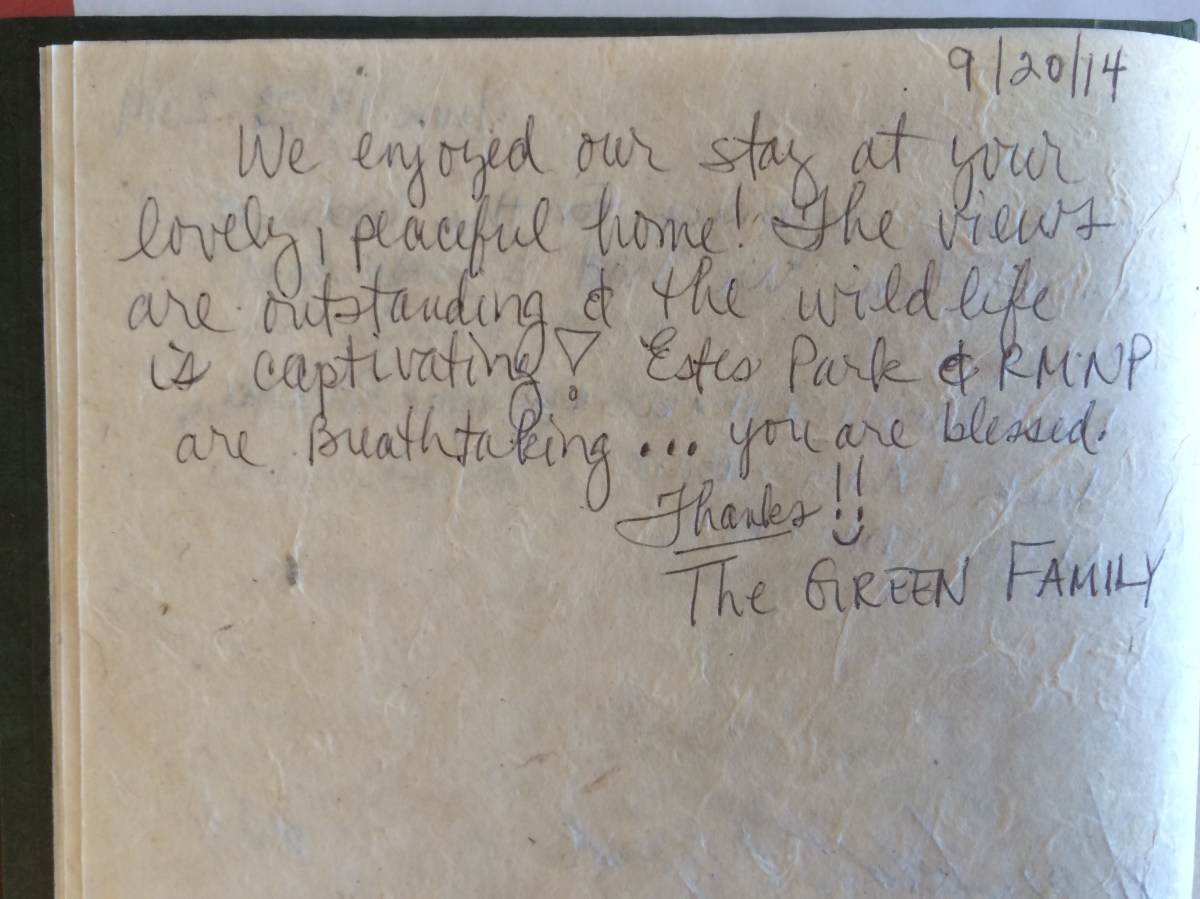 9/20/14
We enjoyed our stay at your
lovely, peaceful home! The views
are outstanding & the wildlife
is captivating! Estes Park & RMNP
are Breathtaking... you are blessed.
Thanks!!
The GREEN FAMILY